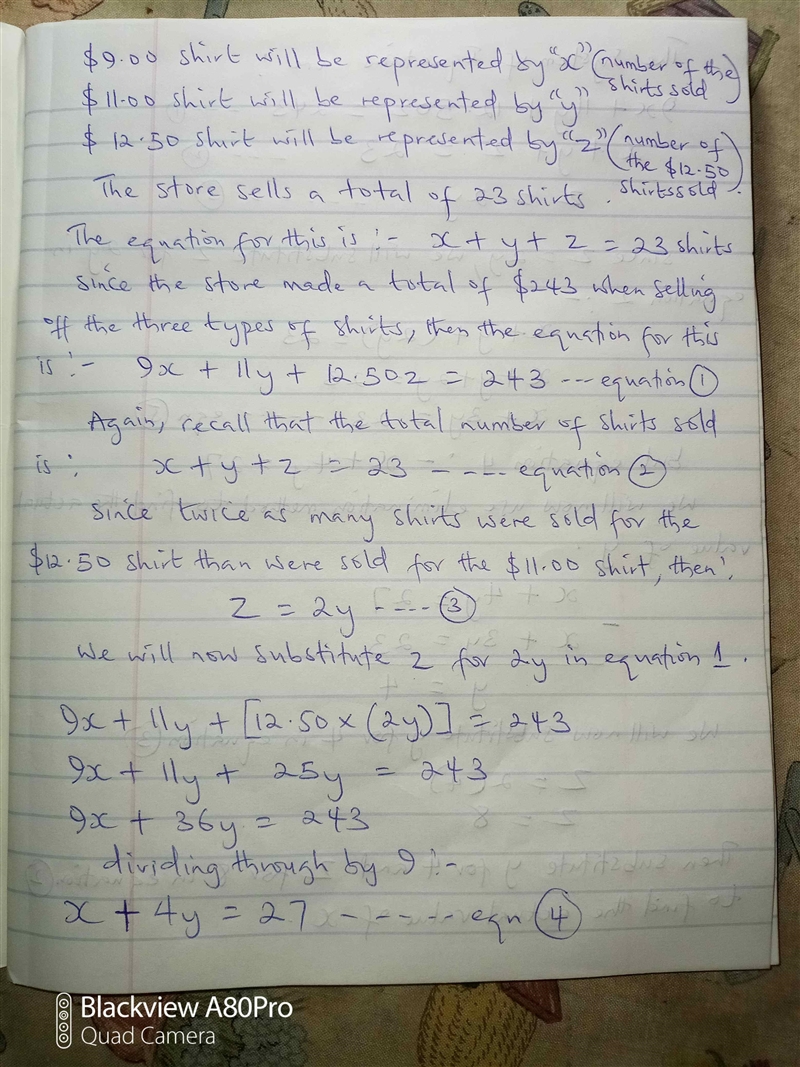 $9.00 shirt will be represented by "x" (number of the shirts sold)
$11.00 shirt will be represented by "y"
$ 12.50 shirt will be represented by "z" (number of the $12.50 shirts sold).
The store sells a total of 23 shirts.
The equation for this is :- x + y + z = 23 shirts
since the store made a total of $243 when selling
off the three types of shirts, then the equation for this
is :- 9x + 11y + 12.50z = 243 --- equation ①
Again, recall that the total number of shirts sold
is: x + y + z = 23 - ---- equation ②
since twice as many shirts were sold for the
$12.50 shirt than were sold for the $11.00 shirt, then:
z = 2y ----- ③
We will now substitute z for 2y in equation 1.
9x + 11y + [12.50 x (2y)] = 243
9x + 11y + 25y = 243
9x + 36y = 243
dividing through by 9 :-
x + 4y = 27 - - - - --- eqn ④
Blackview A80Pro
Quad Camera